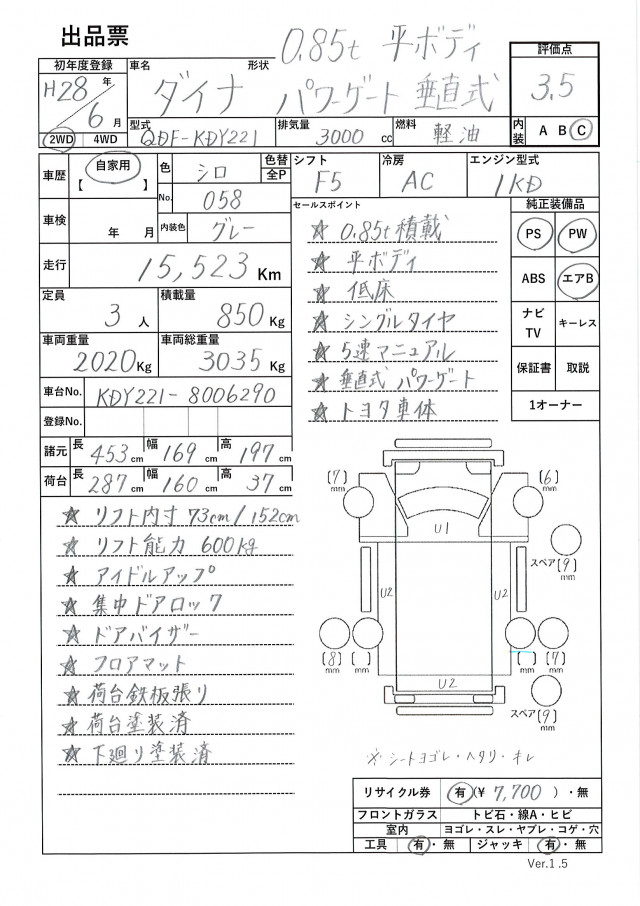 出品票
0.85t 平ボディ
初年度登録 車名 形状 評価点
H28年 ダイナ パワーゲート 垂直式 3.5
6月
型式 QDF-KDY221 排気量 3000 cc 燃料 軽油 内装 A B C
2WD 4WD
車歴 自家用 【 】 色 シロ 色替 全P シフト F5 冷房 AC エンジン型式 1KD
No. 058
車検 年 月 内装色 グレー
走行 15,523 Km
定員 3人 積載量 850Kg
車両重量 2020Kg 車両総重量 3035Kg
車台No. KDY221-8006290
登録No.
諸元 長 453cm 幅 169cm 高 197cm
荷台 長 287cm 幅 160cm 高 37cm
セールスポイント
☆ 0.85t積載
☆ 平ボディ
☆ 低床
☆ シングルタイヤ
☆ 5速マニュアル
☆ 垂直式 パワーゲート
☆ トヨタ車体
純正装備品
PS PW
ABS エアB
ナビ TV キーレス
保証書 取説
1オーナー
☆ リフト内寸 73cm/152cm
☆ リフト能力 600kg
☆ アイドルアップ
☆ 集中ドアロック
☆ ドアバイザー
☆ フロアマット
☆ 荷台鉄板張り
☆ 荷台塗装済
☆ 下廻り塗装済
[7] mm [6] mm
U1
スペア[9] mm
U2 U2
[8] mm [ ] mm [ ] mm [7] mm
U2
スペア[9] mm
※シートヨゴレ・ヘタリ・キレ
リサイクル券 有(¥ 7,700 )・無
フロントガラス トビ石・線A・ヒビ
室内 ヨゴレ・スレ・ヤブレ・コゲ・穴
工具 有・無 ジャッキ 有・無
Ver.1.5